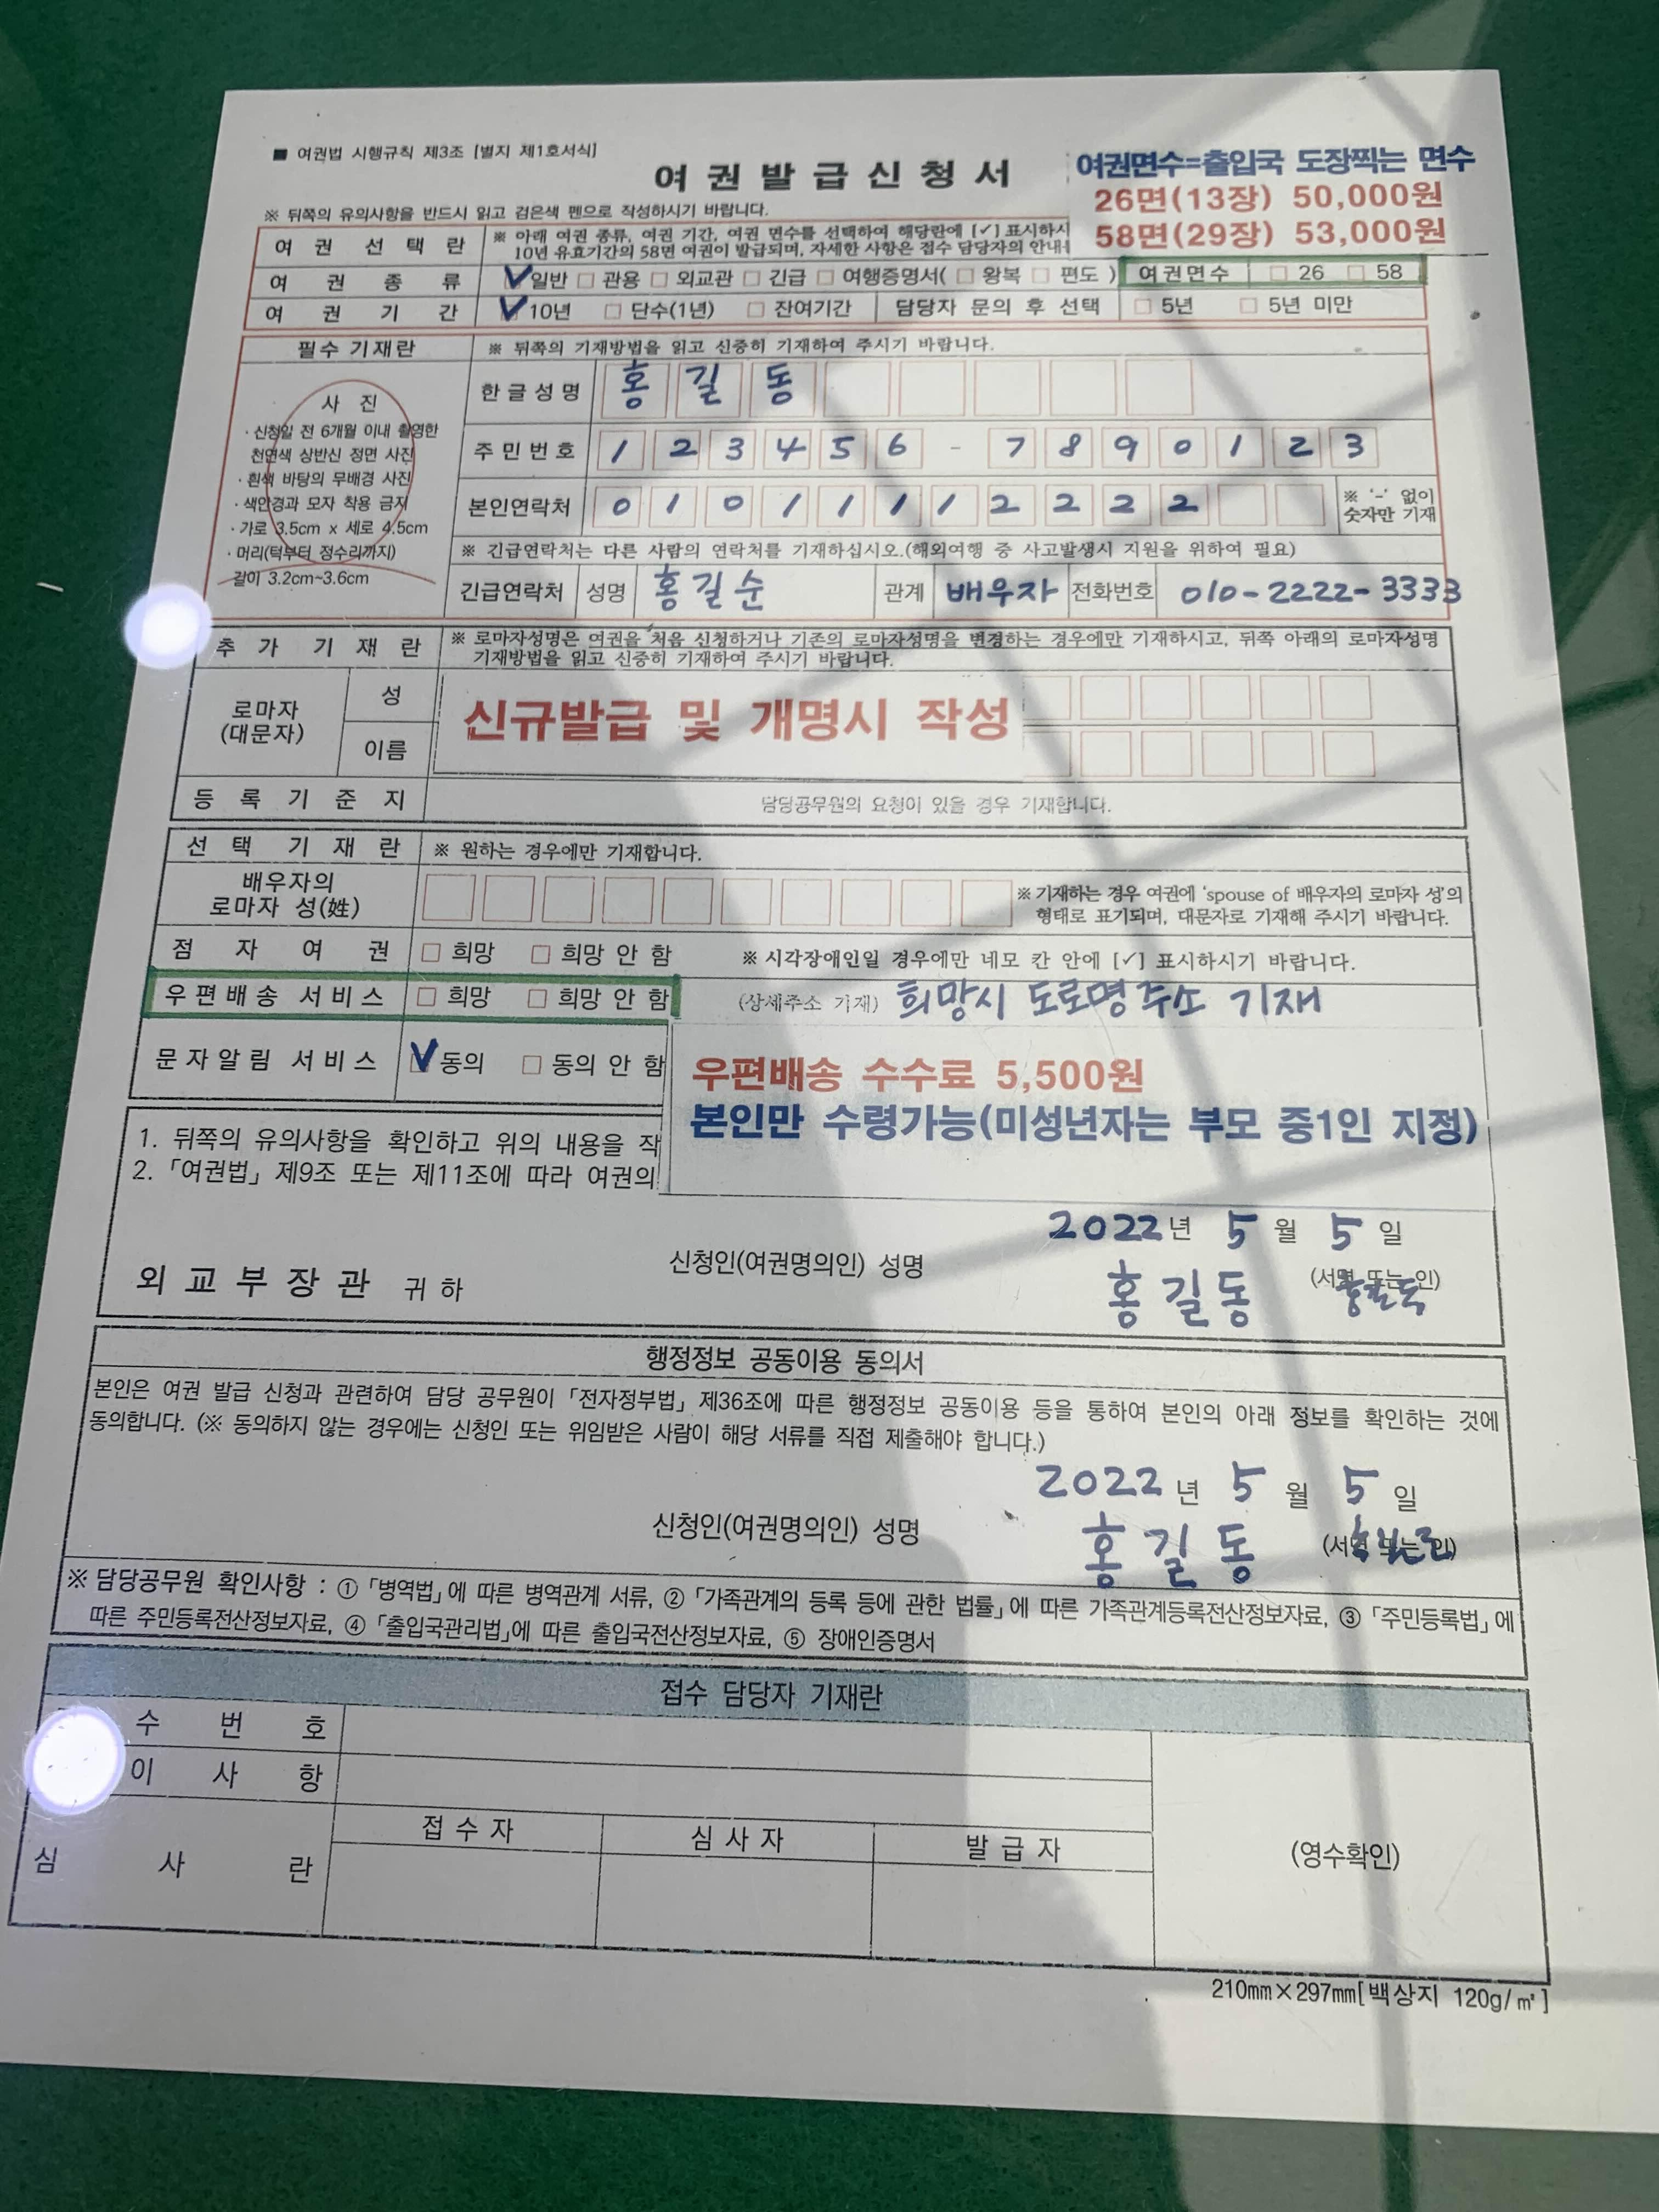 ■ 여권법 시행규칙 제3조 [별지 제1호서식]
여권발급신청서
여권면수=출입국 도장찍는 면수
26면(13장) 50,000원
58면(29장) 53,000원
※ 뒤쪽의 유의사항을 반드시 읽고 검은색 펜으로 작성하시기 바랍니다.
여권선택란 ※ 아래 여권 종류, 여권 기간, 여권 면수를 선택하여 해당란에 [✓] 표시하시
10년 유효기간의 58면 여권이 발급되며, 자세한 사항은 접수 담당자의 안내
여권종류 ✓일반 □ 관용 □ 외교관 □ 긴급 □ 여행증명서( □ 왕복 □ 편도 ) 여권면수 □ 26 □ 58
여권기간 ✓10년 □ 단수(1년) □ 잔여기간 담당자 문의 후 선택 □ 5년 □ 5년 미만
필수 기재란 ※ 뒤쪽의 기재방법을 읽고 신중히 기재하여 주시기 바랍니다.
사 진
· 신청일 전 6개월 이내 촬영한
천연색 상반신 정면 사진
· 흰색 바탕의 무배경 사진
· 색안경과 모자 착용 금지
· 가로 3.5cm x 세로 4.5cm
· 머리(턱부터 정수리까지)
길이 3.2cm~3.6cm
한글성명 홍 길 동
주민번호 1 2 3 4 5 6 - 7 8 9 0 1 2 3
본인연락처 0 1 0 1 1 1 1 2 2 2 2 ※ '-' 없이
숫자만 기재
※ 긴급연락처는 다른 사람의 연락처를 기재하십시오.(해외여행 중 사고발생시 지원을 위하여 필요)
긴급연락처 성명 홍길순 관계 배우자 전화번호 010-2222-3333
추가기재란 ※ 로마자성명은 여권을 처음 신청하거나 기존의 로마자성명을 변경하는 경우에만 기재하시고, 뒤쪽 아래의 로마자성명
기재방법을 읽고 신중히 기재하여 주시기 바랍니다.
로마자
(대문자)
성
이름
신규발급 및 개명시 작성
등록기준지 담당공무원의 요청이 있을 경우 기재합니다.
선택기재란 ※ 원하는 경우에만 기재합니다.
배우자의
로마자 성(姓)
※ 기재하는 경우 여권에 'spouse of 배우자의 로마자 성'의
형태로 표기되며, 대문자로 기재해 주시기 바랍니다.
점자여권 □ 희망 □ 희망 안 함 ※ 시각장애인일 경우에만 네모 칸 안에 [✓] 표시하시기 바랍니다.
우편배송 서비스 □ 희망 □ 희망 안 함 (상세주소 기재) 희망시 도로명주소 기재
문자알림 서비스 ✓동의 □ 동의 안 함
우편배송 수수료 5,500원
본인만 수령가능(미성년자는 부모 중1인 지정)
1. 뒤쪽의 유의사항을 확인하고 위의 내용을 작
2. 「여권법」 제9조 또는 제11조에 따라 여권의
2022년 5월 5일
신청인(여권명의인) 성명 홍길동 (서명 또는 인) 홍길동
외교부장관 귀하
행정정보 공동이용 동의서
본인은 여권 발급 신청과 관련하여 담당 공무원이 「전자정부법」 제36조에 따른 행정정보 공동이용 등을 통하여 본인의 아래 정보를 확인하는 것에
동의합니다. (※ 동의하지 않는 경우에는 신청인 또는 위임받은 사람이 해당 서류를 직접 제출해야 합니다.)
2022년 5월 5일
신청인(여권명의인) 성명 홍길동 (서명 또는 인)
※ 담당공무원 확인사항 : ① 「병역법」에 따른 병역관계 서류, ② 「가족관계의 등록 등에 관한 법률」에 따른 가족관계등록전산정보자료, ③ 「주민등록법」에
따른 주민등록전산정보자료, ④ 「출입국관리법」에 따른 출입국전산정보자료, ⑤ 장애인증명서
접수 담당자 기재란
수 번 호
이 사 항
심 사 란
접수자 심사자 발급자
(영수확인)
210mm×297mm[백상지 120g/㎡]